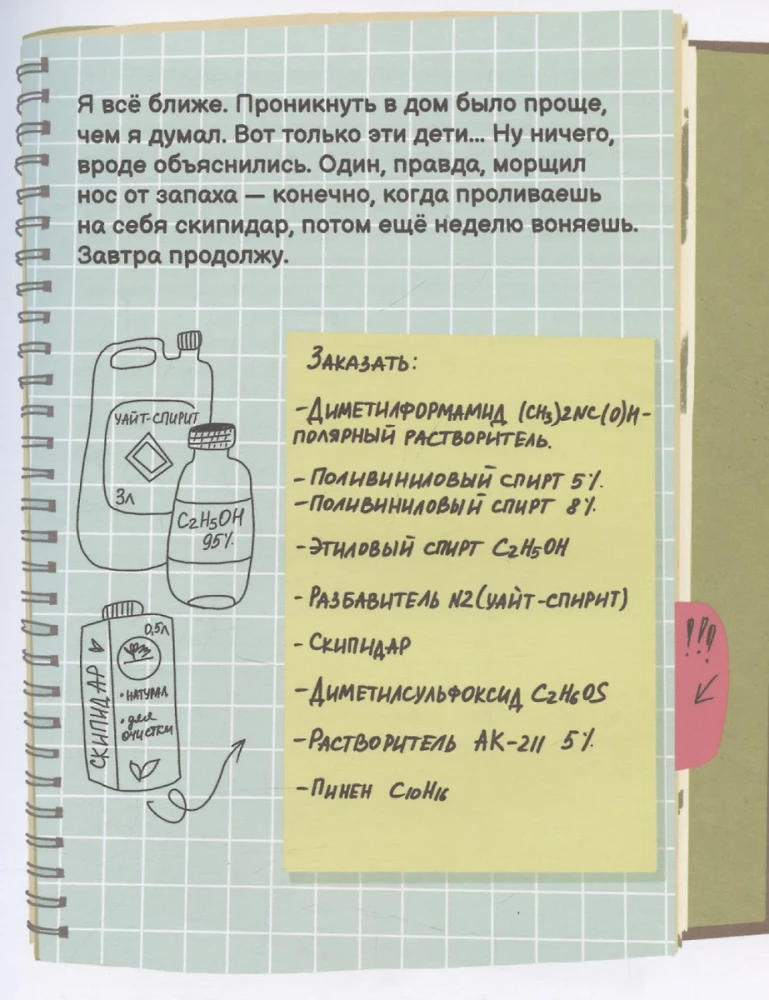 Я всё ближе. Проникнуть в дом было проще,
чем я думал. Вот только эти дети... Ну ничего,
вроде объяснились. Один, правда, морщил
нос от запаха — конечно, когда проливаешь
на себя скипидар, потом ещё неделю воняешь.
Завтра продолжу.
УАЙТ-СПИРИТ
3л
C2H5OH
95%
0,5л
СКИПИДАР
• НАТУРАЛ
• для
ОЧИСТКИ
Заказать:
-Диметилформамид (CH3)2NC(O)H-
полярный растворитель.
- Поливиниловый спирт 5%.
- Поливиниловый спирт 8%.
- Этиловый спирт C2H5OH
- Разбавитель N2(уайт-спирит)
- Скипидар
- Диметилсульфоксид C2H6OS
- Растворитель АК-211 5%.
- Пинен C10H16
!!!